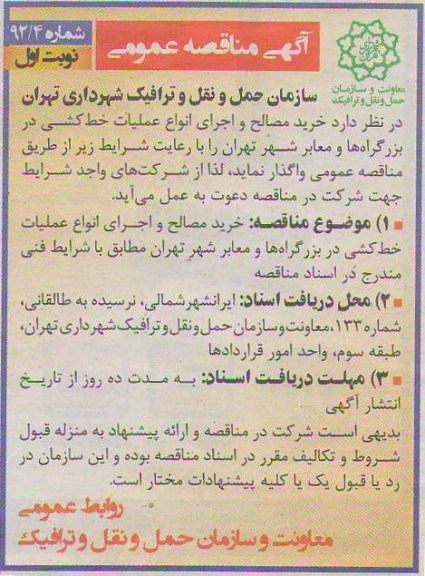 آگهی مناقصه عمومی
شماره ۹۲/۴
نوبت اول
معاونت و سازمان
حمل و نقل و ترافیک
سازمان حمل و نقل و ترافیک شهرداری تهران
در نظر دارد خرید مصالح و اجرای انواع عملیات خط‌کشی در
بزرگراه‌ها و معابر شهر تهران را با رعایت شرایط زیر از طریق
مناقصه عمومی واگذار نماید، لذا از شرکت‌های واجد شرایط
جهت شرکت در مناقصه دعوت به عمل می‌آید.
۱) موضوع مناقصه: خرید مصالح و اجرای انواع عملیات
خط‌کشی در بزرگراه‌ها و معابر شهر تهران مطابق با شرایط فنی
مندرج در اسناد مناقصه
۲) محل دریافت اسناد: ایرانشهرشمالی، نرسیده به طالقانی،
شماره ۱۳۳، معاونت و سازمان حمل و نقل و ترافیک شهرداری تهران،
طبقه سوم، واحد امور قراردادها
۳) مهلت دریافت اسناد: به مدت ده روز از تاریخ
انتشار آگهی
بدیهی است شرکت در مناقصه و ارائه پیشنهاد به منزله قبول
شروط و تکالیف مقرر در اسناد مناقصه بوده و این سازمان در
رد یا قبول یک یا کلیه پیشنهادات مختار است.
روابط عمومی
معاونت و سازمان حمل و نقل و ترافیک